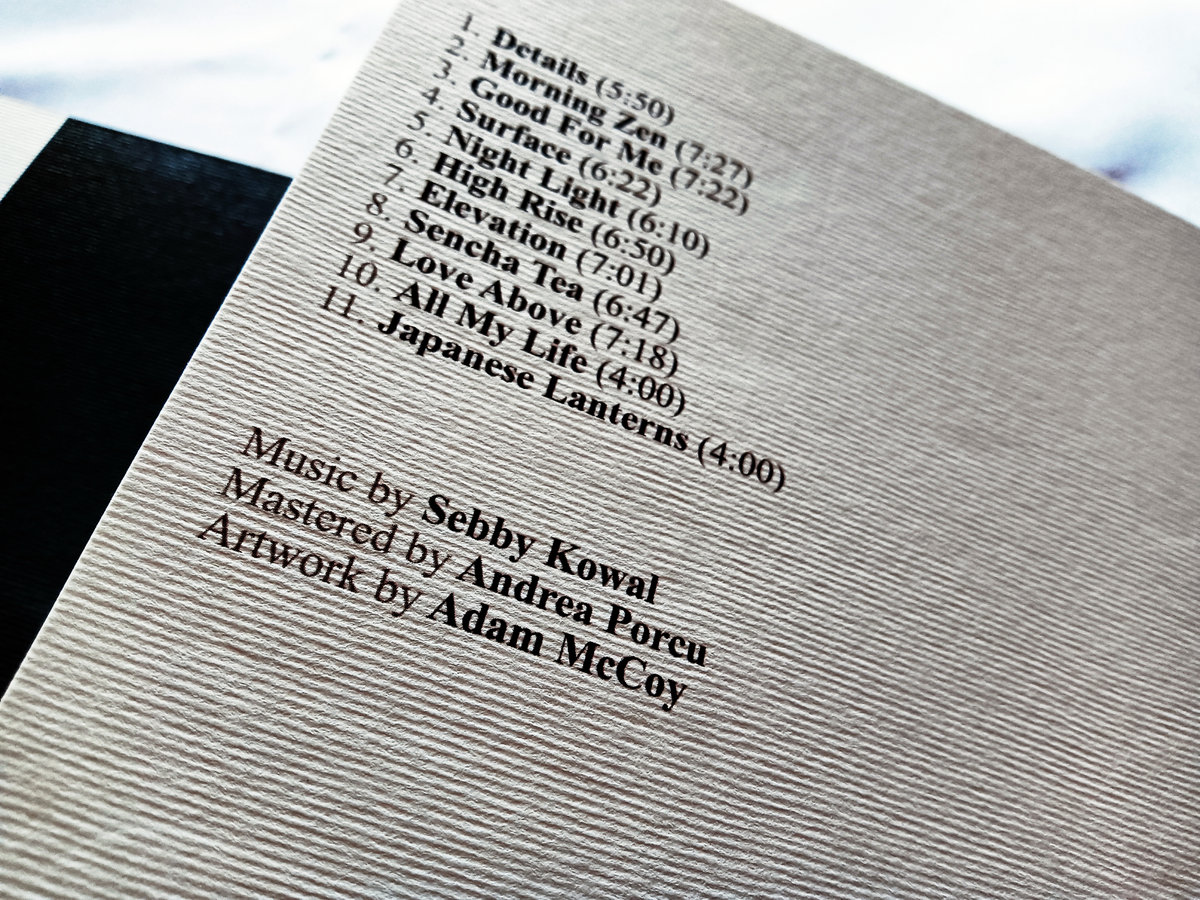 1. Details (5:50)
2. Morning Zen (7:27)
3. Good For Me (7:22)
4. Surface (6:22)
5. Night Light (6:10)
6. High Rise (6:50)
7. Elevation (7:01)
8. Sencha Tea (6:47)
9. Love Above (7:18)
10. All My Life (4:00)
11. Japanese Lanterns (4:00)
Music by Sebby Kowal
Mastered by Andrea Porcu
Artwork by Adam McCoy